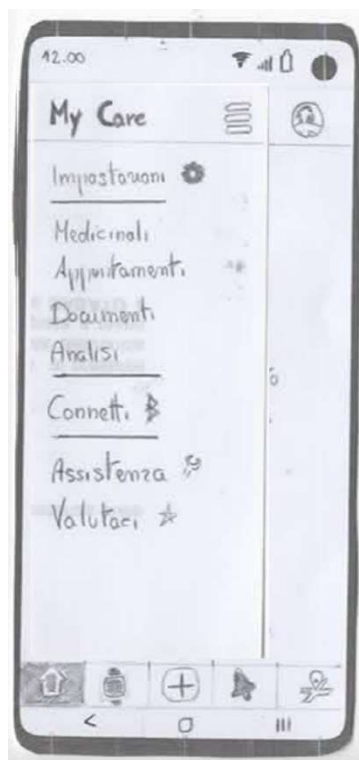 12.00
My Care
Impostazioni
Medicinali
Appuntamenti
Documenti
Analisi
Connetti
Assistenza
Valutaci